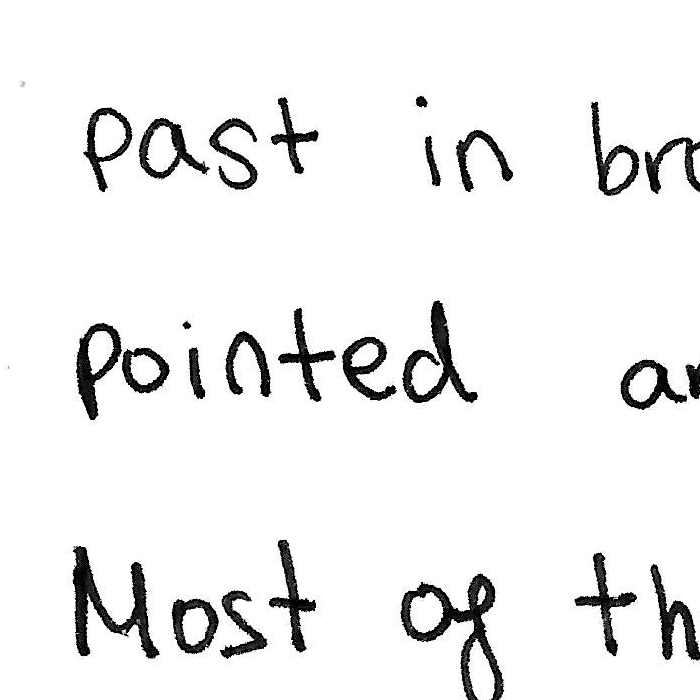 past in bro
pointed an
Most of th